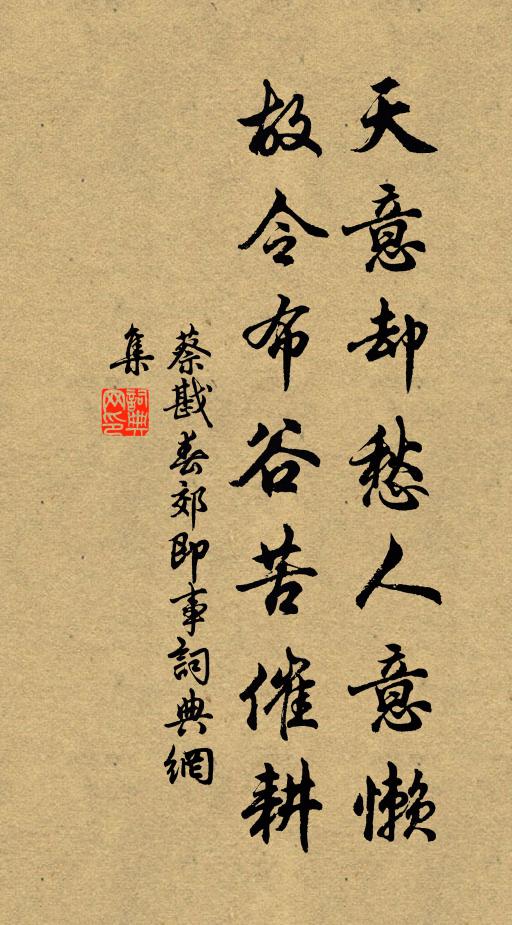 天意却愁人意懒
故令布谷苦催耕
蔡戡春郊即事詞典網
集
詞典
网印